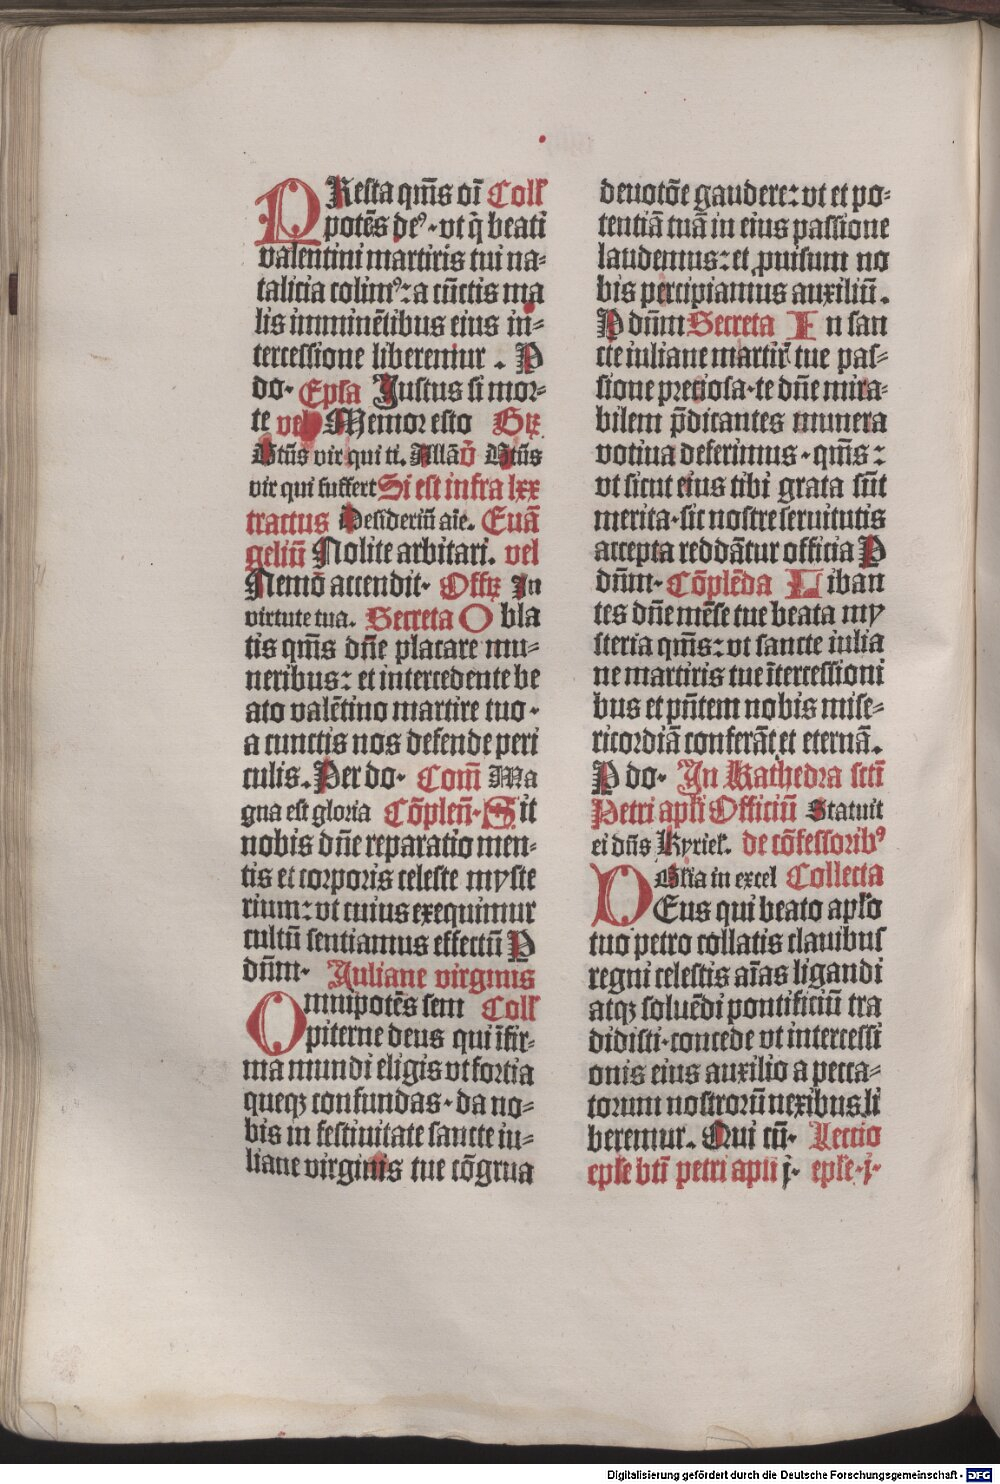 PResta qm̄s oī Coll'
potēs deꝰ·vt q̄ beati
valentini martiris tui na⸗
talicia colimꝰ: a cūctis ma
lis imminētibus eius in⸗
tercessione liberemur . P
do· Epsa Justus si mor⸗
te vel Memor esto Grꝫ
Btūs vir qui ti. Allāo ℣ Btūs
vir qui suffert Si est infra lxx
tractus Desideriū aīe. Euā
geliū Nolite arbitari. vel
Nemō accendit· Offꝫ In
virtute tua. Secreta O bla
tis qm̄s dn̄e placare mu⸗
neribus: et intercedente be
ato valētino martire tuo·
a cunctis nos defende peri
culis. Per do· Com̄ Ma
gna est gloria Cōplen̄· Sit
nobis dn̄e reparatio men⸗
tis et corporis celeste myste
rium: vt cuius exequimur
cultū sentiamus effectū P
dn̄m· Juliane virginis
Omnipotēs sem Coll'
piterne deus qui īfir⸗
ma mundi eligis vt fortia
queqꝫ confundas·da no⸗
bis in festiuitate sancte iu⸗
liane virginis tue cōgrua
deuotōe gaudere: vt et po⸗
tentiā tuā in eius passione
laudemus: et ꝓuisum no
bis percipiamus auxiliū.
P dn̄m Secreta In san
cte iuliane martir̄ tue pas⸗
sione preciosa·te dn̄e mira⸗
bilem p̄dicantes munera
votiua deferimus·qm̄s:
vt sicut eius tibi grata sūt
merita·sic nostre seruitutis
accepta reddātur officia P
dn̄m· Cōplēda Liban
tes dn̄e mēse tue beata my
steria qm̄s: vt sancte iulia
ne martiris tue ītercessioni
bus et pn̄tem nobis mise⸗
ricordiā conferāt et eternā.
P do· In Kathedra sctī
Petri apl'i Officiū Statuit
ei dn̄s Kyriel'. de cōfessoribꝰ
Gl'ia in excel Collecta
DEus qui beato apl'o
tuo petro collatis clauibus
regni celestis aīas ligandi
atqꝫ soluēdi pontificiū tra
didisti·concede vt intercessi
onis eius auxilio a pecca⸗
torum nostrorū nexibus li
beremur. Qui cū· Lectio
epl'e btī petri apl'i j· epl'e·j·
Digitalisierung gefördert durch die Deutsche Forschungsgemeinschaft - DFG